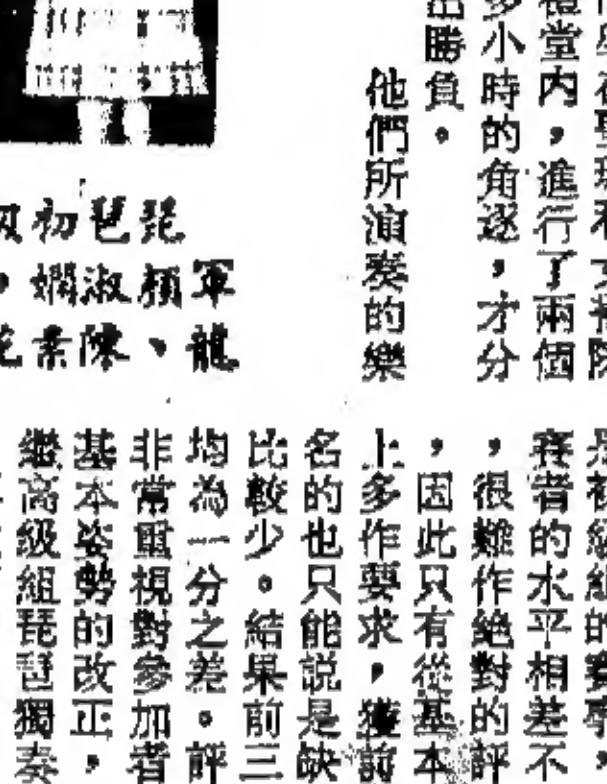 禮堂內，進行了兩個
多小時的角逐，才分
出勝負。
他們所演奏的樂
琵琶初
軍顏淑嫻，
龍、陳素
賽者的水平相差不
，很難作絕對的評
，因此只有從基本
上多作要求，獲前
名的也只能説是缺
比較少。結果前三
均為一分之差。評
非常重視對參加者
基本姿勢的改正，
繼高級組琵琶獨奏